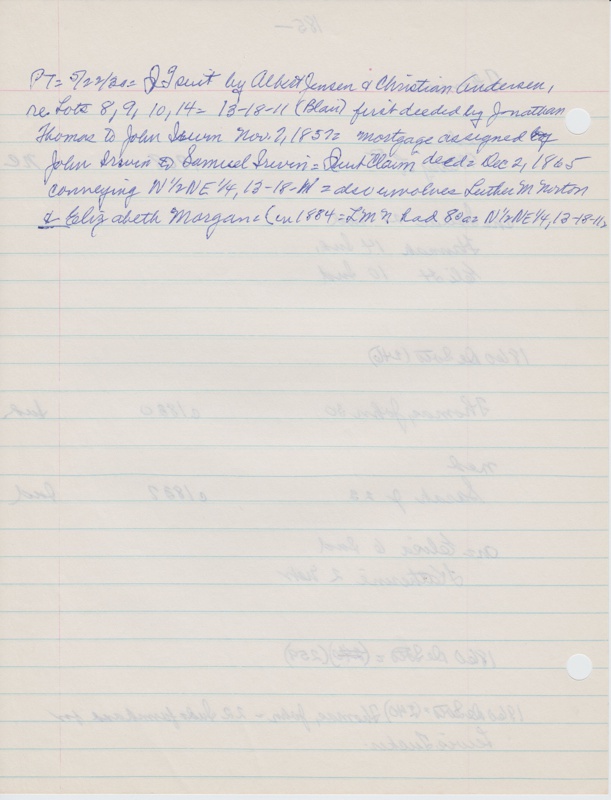 PT = 5/22/30 = Q T suit by Albert Jensen & Christian Andersen,
re. Lots 8, 9, 10, 14 = 13-18-11 (Blair) first deeded by Jonathan
Thomas to John Irwin Nov. 7, 1857 = mortgage assigned by
John Irwin to Samuel Irwin = Quit Claim deed = Dec 2, 1865
conveying N½NE¼, 13-18-11 = also involves Luther M. Norton
& Elizabeth Morgan = (in 1884 = L M N had 80a = N½NE¼, 13-18-11)